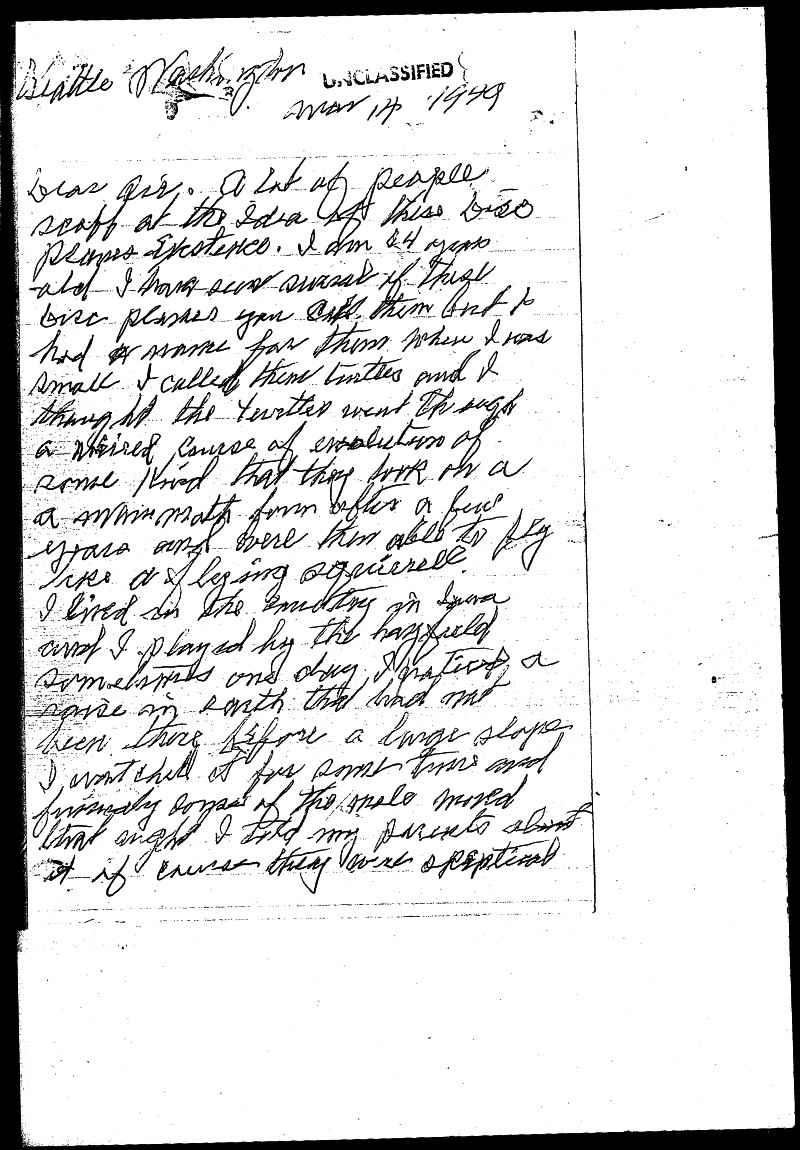 Seattle Washington
UNCLASSIFIED
Mar 14 1949
Dear Sir. A lot of people
scoff at the Idea of these Disc
planes Existence. I am 24 years
old I have seen several of these
Disc planes you call them but I
had a name for them when I was
small I called them turtles and I
thought the turtles went through
a course of evolution of
some kind that they took on a
a form after a few
years and were then able to fly
like a flying squirrell.
I lived in the country in Iowa
and I played by the hayfield
sometimes one day I noticed a
raise in earth that had not
been there before a large slope
I watched it for some time and
some of the mole moved
that night I told my parents about
it of course they were skeptical